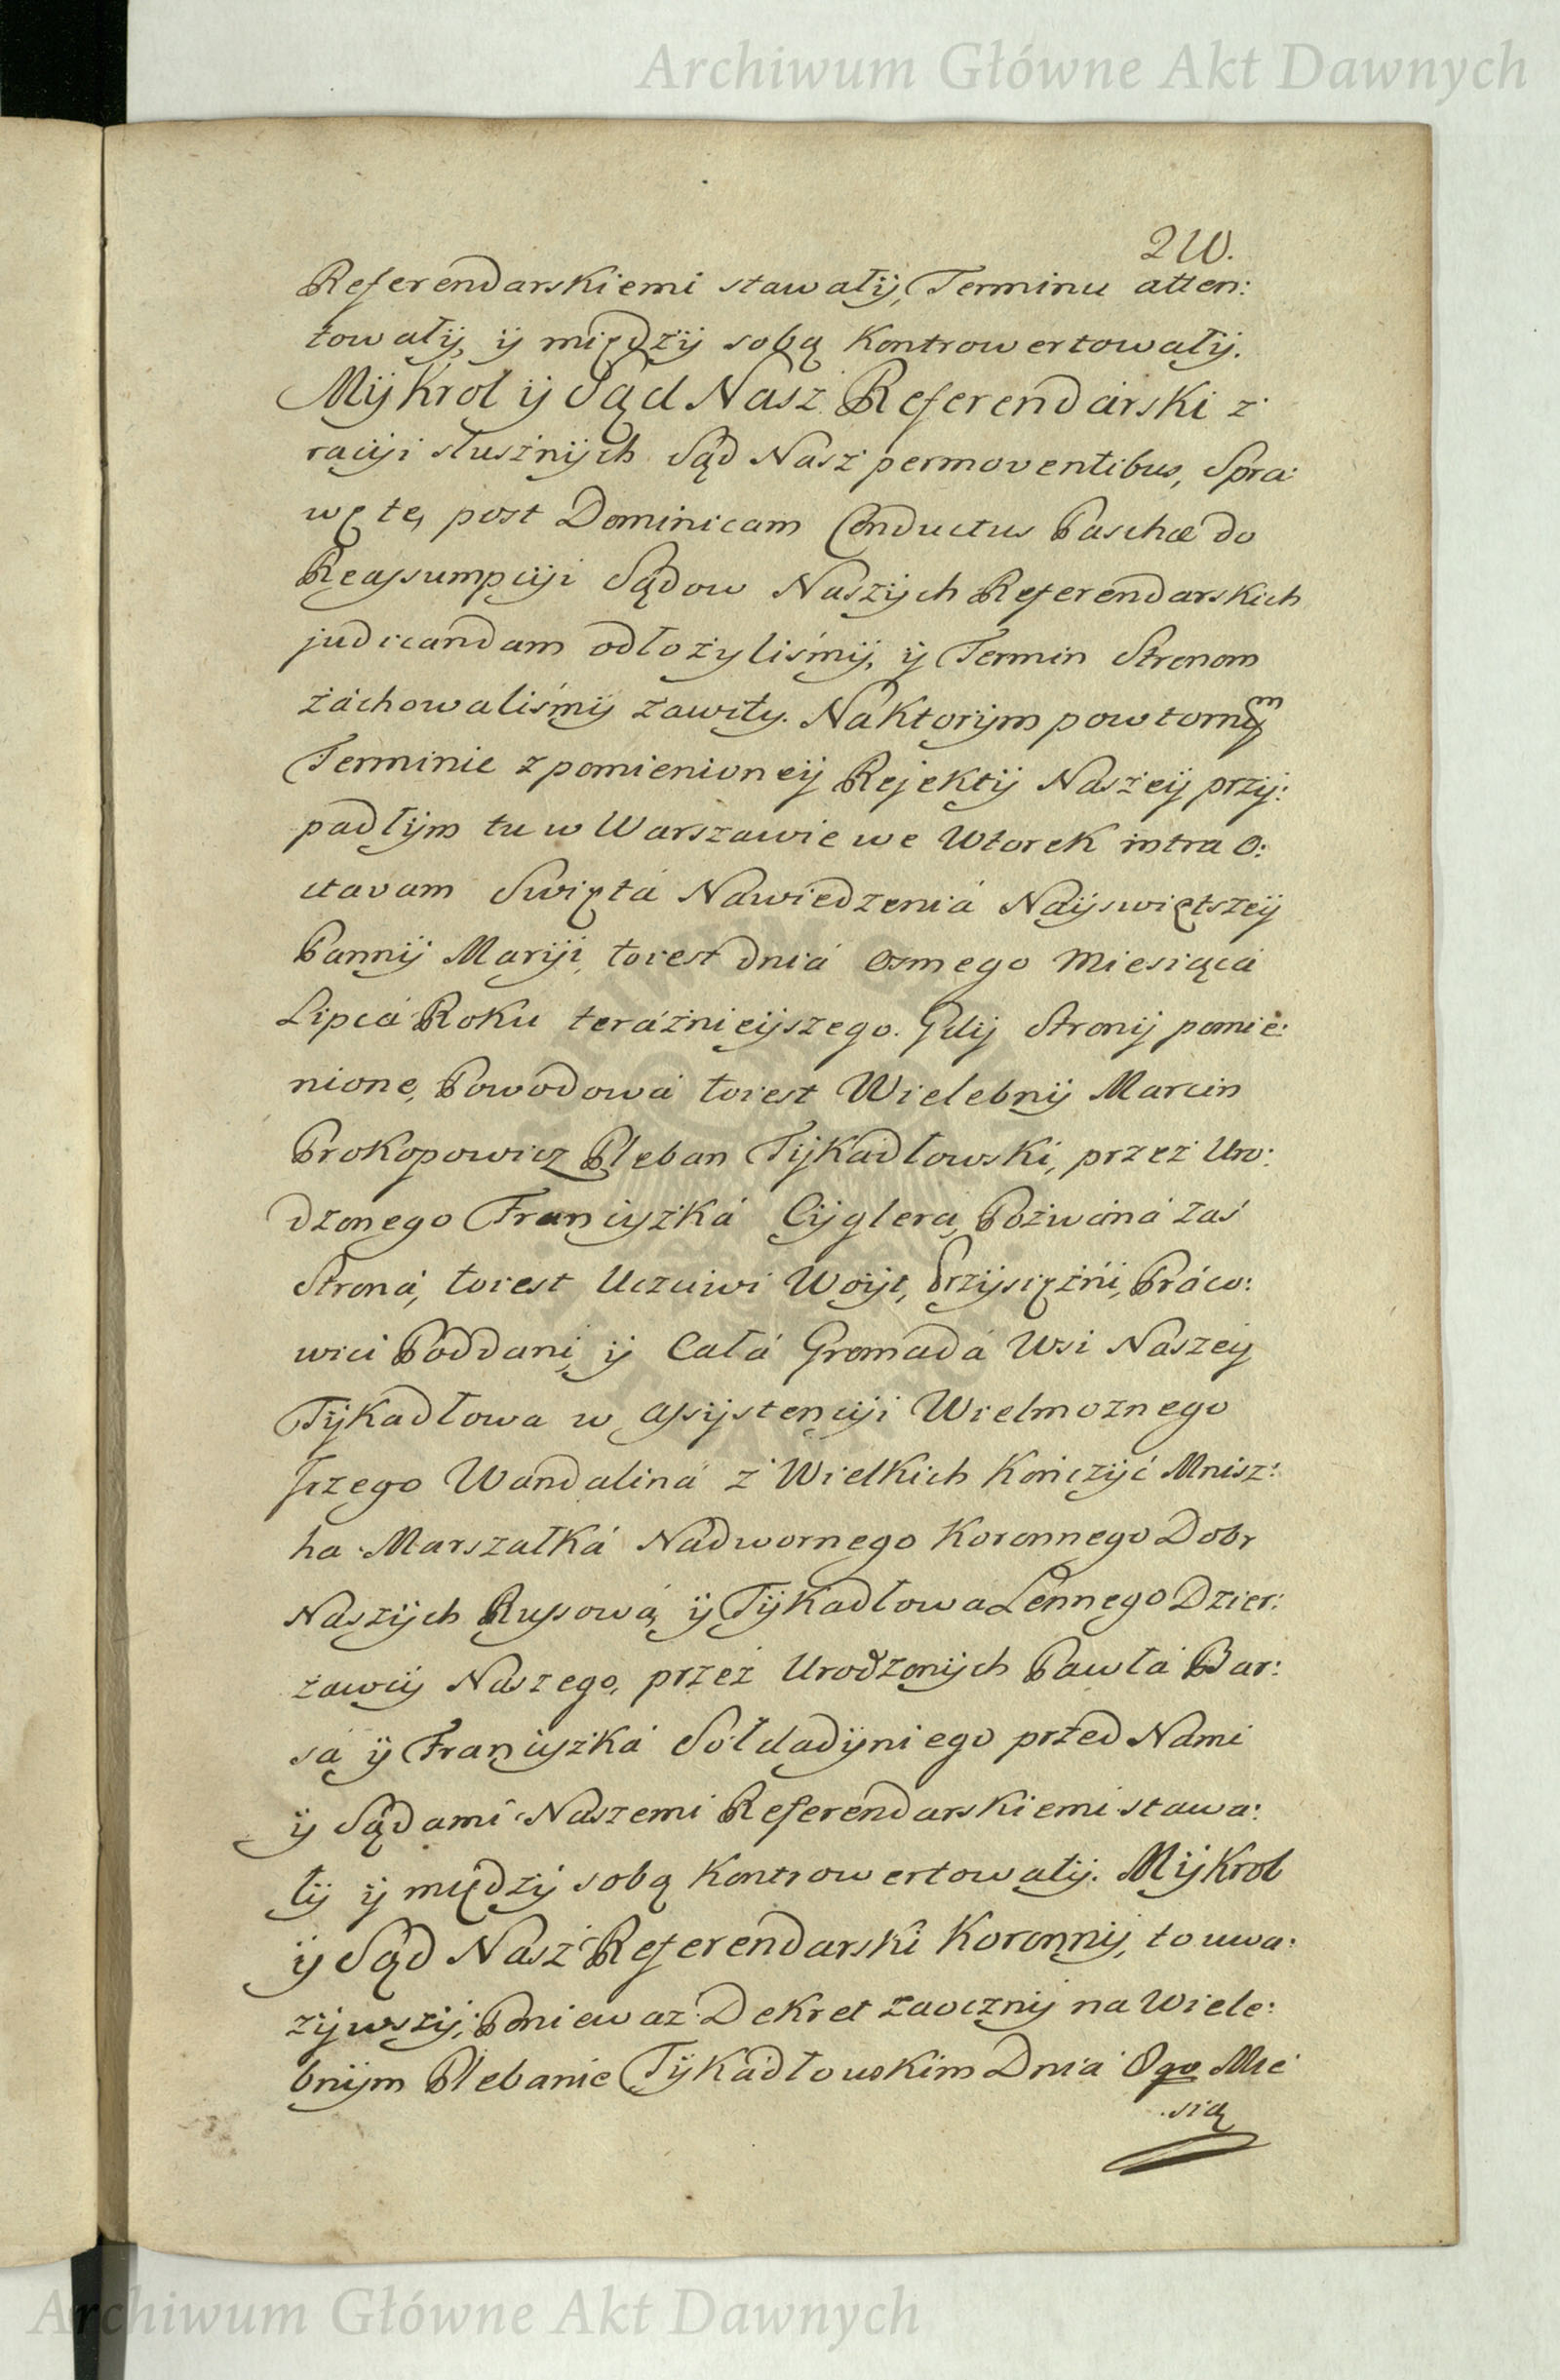 Archiwum Główne Akt Dawnych
210.
Referendarskiemi stawały, Terminu atten:
towały, ÿ międzÿ sobą Kontrowertowałÿ.
Mÿ Krol ÿ Sąd Nasz Referendarski z
racÿi słusznÿch Sąd Nasz permoventibus, Spra:
wę tę, post Dominicam Conductus Paschæ do
Reassumpcÿi Sądow Naszÿch Referendarskich
judicandam odłożyliśmÿ, ÿ Termin Stronom
záchowaliśmÿ zawiły. Ná Ktorÿm powtornÿm
Terminie z pomienioneÿ Rejektÿ Naszeÿ przÿ:
padłÿm tu w Warszawie we Wtorek intra O:
ctavam Swiętá Nawiedzeniá Náÿswiętszeÿ
Pannÿ Marÿi, toiest dniá osmego Miesiącá
Lipcá Roku teráżnieÿszego. Gdÿ Stronÿ pomie:
nione, Powodowá toiest Wielebnÿ Marcin
Prokopowicz Pleban Tÿkadłowski, przez Uro:
dzonego Franciszká Cÿglera, Pozwáná zaś
Stroná, toiest Uczciwi Woÿt, Przÿsiężni, Práco:
wici Poddani, ÿ Całá Gromadá Wsi Naszeÿ
Tÿkadłowa w assÿstencÿi Wielmoznego
Jrzego Wandaliná z Wielkich Kończÿć Mnisz:
ha Marszałká Nadwornego Koronnego Dobr
Naszÿch Russowá, ÿ Tÿkadłowa Lennego Dzier:
zawcÿ Naszego, przez Urodzonÿch Pawłá Bar:
sá ÿ Franciszká Sołdadÿniego przed Nami
ÿ Sądami Naszemi Referendarskiemi stawa:
łÿ ÿ międzÿ sobą Kontrowertowałÿ. Mÿ Krol
ÿ Sąd Nasz Referendarski Koronnÿ, to uwa:
zÿwszÿ, Poniewaz Dekret zaocznÿ na Wiele:
bnÿm Plebanie Tÿkadłowskim Dnia 8go Mie
sią
Archiwum Główne Akt Dawnych